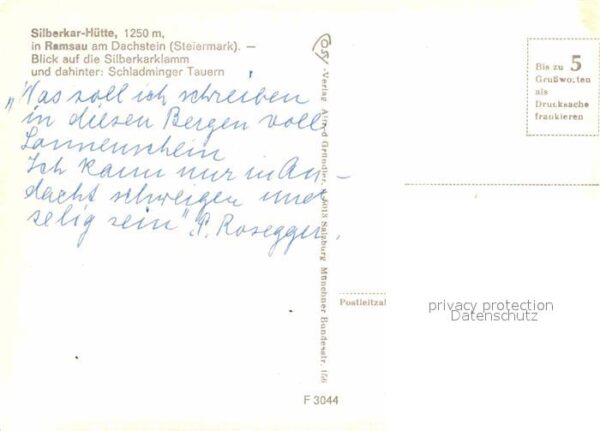 Silberkar-Hütte, 1250 m,
in Ramsau am Dachstein (Steiermark). —
Blick auf die Silberkarklamm
und dahinter: Schladminger Tauern
„Was soll ich schreiben
in diesen Bergen voll
Sonnenschein
Ich kann nur in An-
dacht schweigen und
selig sein" P. Rosegger.
Verlag Alfred Gründler, 5013 Salzburg Münchner Bundesstr. 156
Bis zu 5
Grußworten
als
Drucksache
frankieren
Postleitzahl
privacy protection
Datenschutz
F 3044